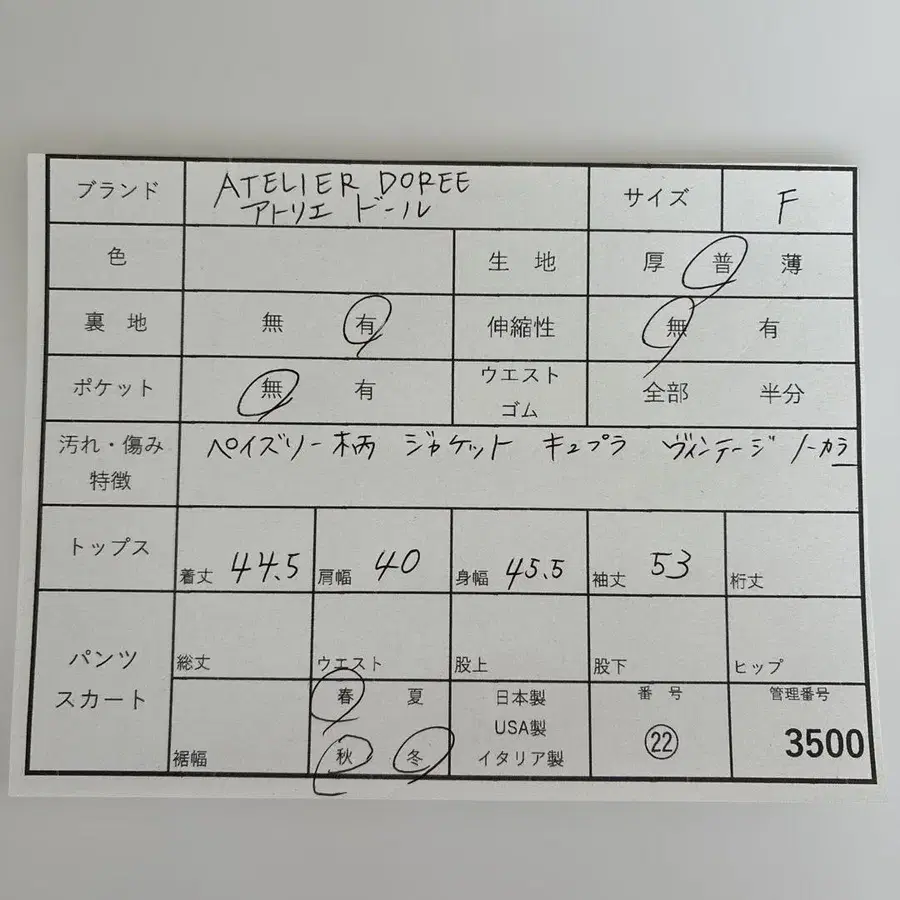 ブランド ATELIER DOREE サイズ F
アトリエ ドール
色 生地 厚 普 薄
裏地 無 有 伸縮性 無 有
ポケット 無 有 ウエスト 全部 半分
ゴム
汚れ・傷み ペイズリー柄 ジャケット キュプラ ヴィンテージ ノーカラー
特徴
トップス 着丈 44.5 肩幅 40 身幅 45.5 袖丈 53 裄丈
パンツ
スカート
総丈 ウエスト 股上 股下 ヒップ
裾幅
春 夏
秋 冬
日本製
USA製
イタリア製
番号
22
管理番号
3500